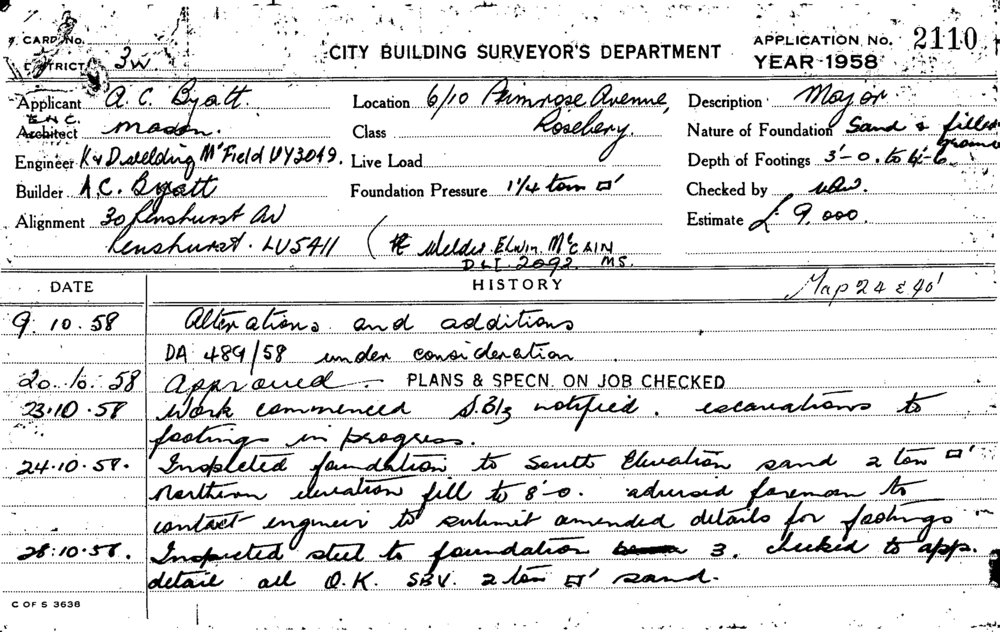 CARD No.
CITY BUILDING SURVEYOR'S DEPARTMENT
APPLICATION No. 2110
DISTRICT 3W
YEAR 1958
Applicant A. C. Byatt.
Location 6/10 Primrose Avenue,
Description Major
ENC.
Architect Mason.
Class Rosebery.
Nature of Foundation Sand & filled
ground
Engineer K & D Welding McField UY3049.
Live Load
Depth of Footings 3'-0. to 4'-6.
Builder A.C. Byatt
Foundation Pressure 1 1/4 tom □'
Checked by
Alignment 30 Penshurst Av
Estimate £ 9,000.
Penshurst. LU5411
Welder. Elwin McCain
DLI. 2092. MS.
DATE
HISTORY
Map 24 & 40'
9. 10. 58
Alterations and additions
DA 489/58 under consideration
20. 10. 58
Approved. PLANS & SPECN. ON JOB CHECKED
23.10.58
Work commenced S.B/3 notified. excavations to
footings in progress.
24.10.58.
Inspected foundation to South Elevation sand 2 ton □'
Northern elevation fill to 8'-0. advised foreman to
contact engineer to submit amended details for footings
28.10.58.
Inspected steel to foundation 3. checked to app.
detail all O.K. SBV. 2 ton □' sand.
C OF S 3638